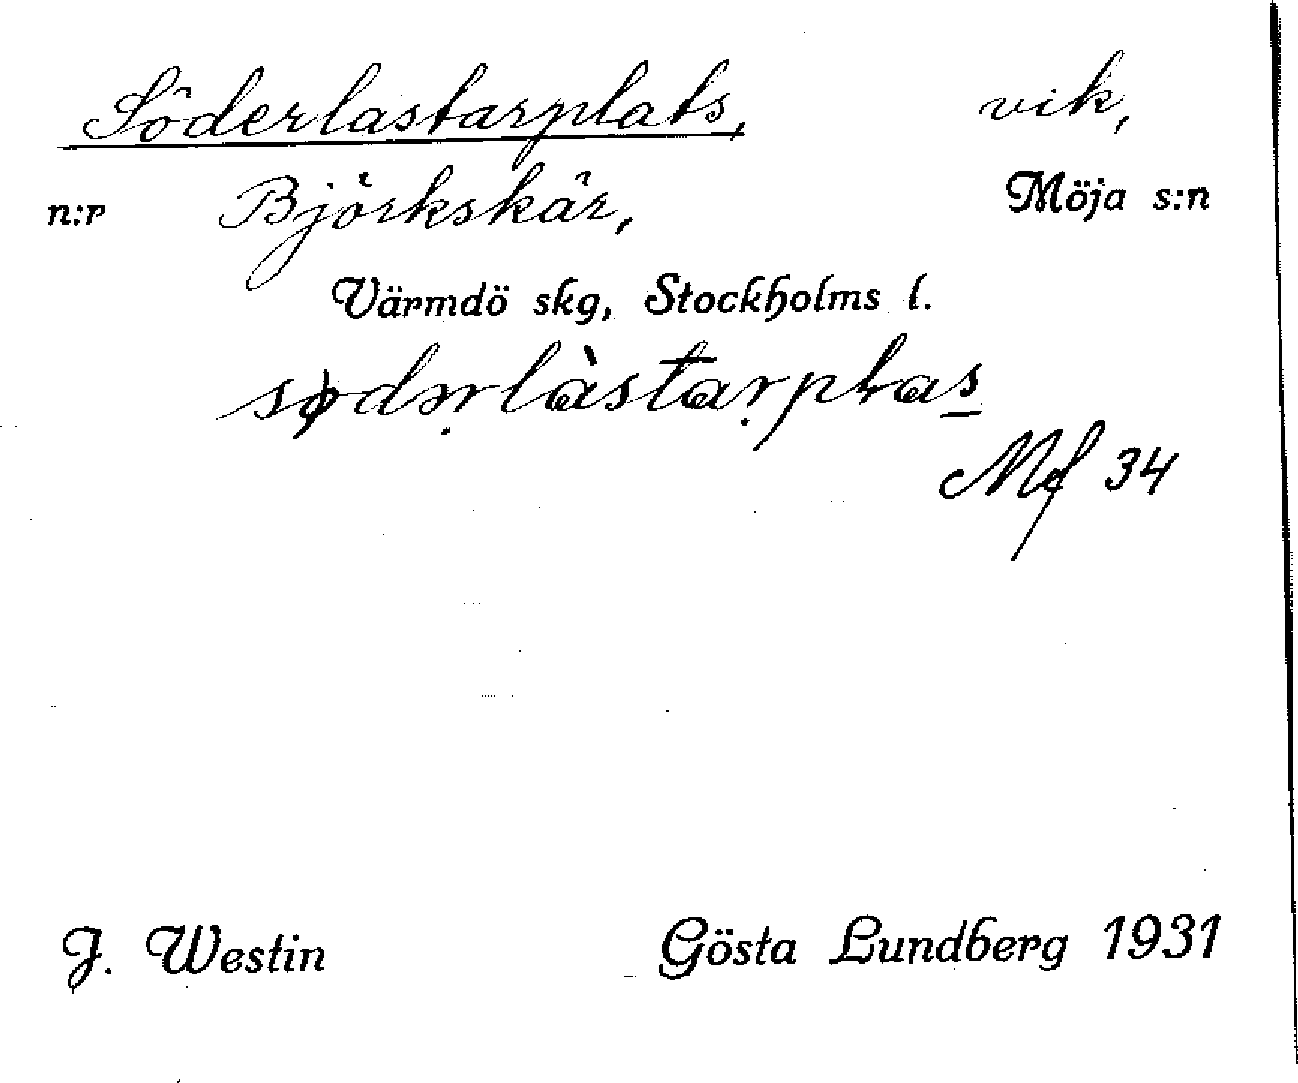 Söderlastarplats, vik,
n:r Björkskär, Möja s:n
Värmdö skg, Stockholms l.
sødərlàstarplas
Mf 34
J. Westin Gösta Lundberg 1931